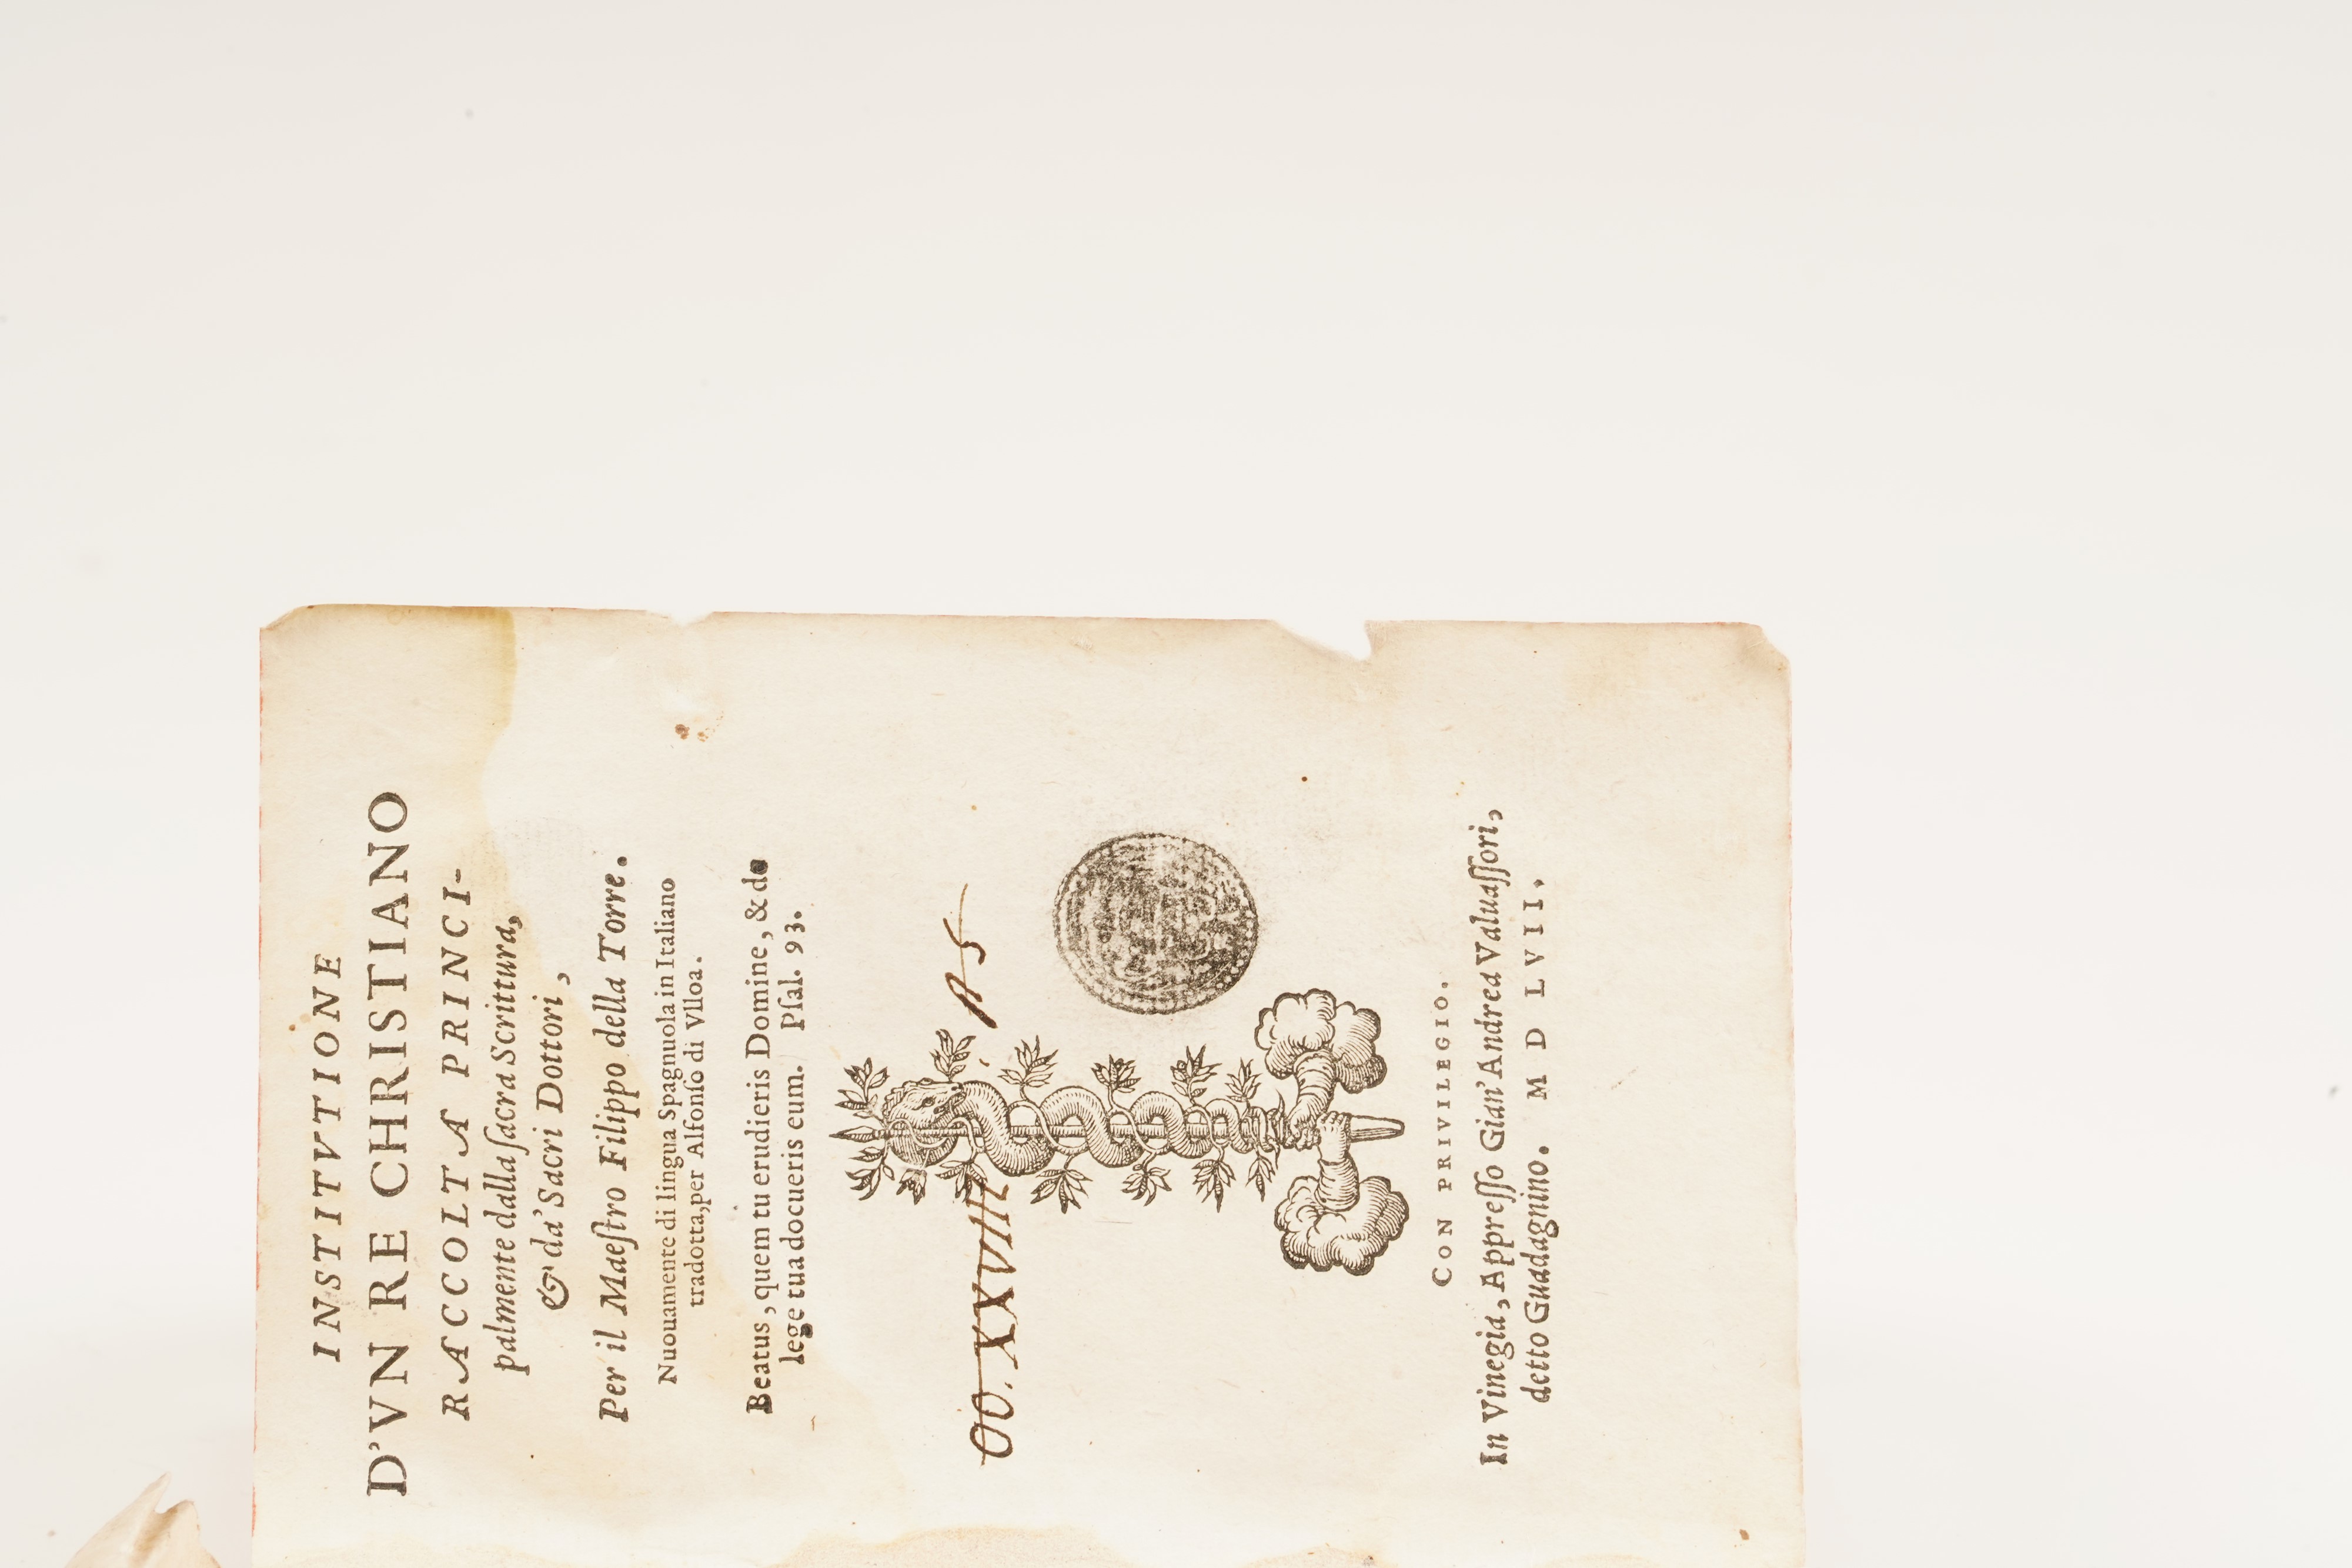 INSTITVTIONE
D'VN RE CHRISTIANO
RACCOLTA PRINCI-
palmente dalla ſacra Scrittura,
& da' Sacri Dottori,
Per il Maeſtro Filippo della Torre.
Nuouamente di lingua Spagnuola in Italiano
tradotta, per Alfonſo di Vlloa.
Beatus, quem tu erudieris Domine, & de
lege tua docueris eum. Pſal. 93.
OO. XXVIII
A 5
CON PRIVILEGIO.
In Vinegia, Appreſſo Gian' Andrea Valuaſſori,
detto Guadagnino. M D LVII.